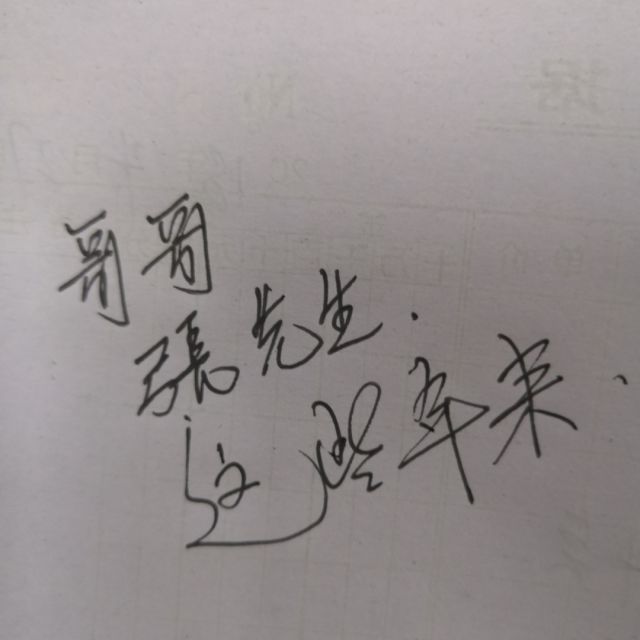 哥哥
張先生.
这些年来、